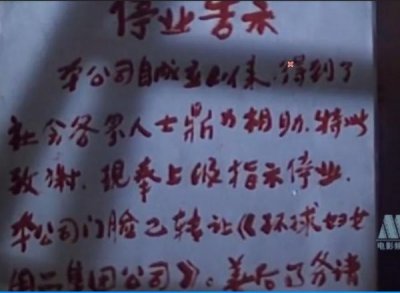 停业告示
本公司自成立以来,得到了
社会各界人士鼎力相助.特此
致谢.现奉上级指示停业.
本公司门脸已转让《环球妇女
用品集团公司》.善后事务请
电影频